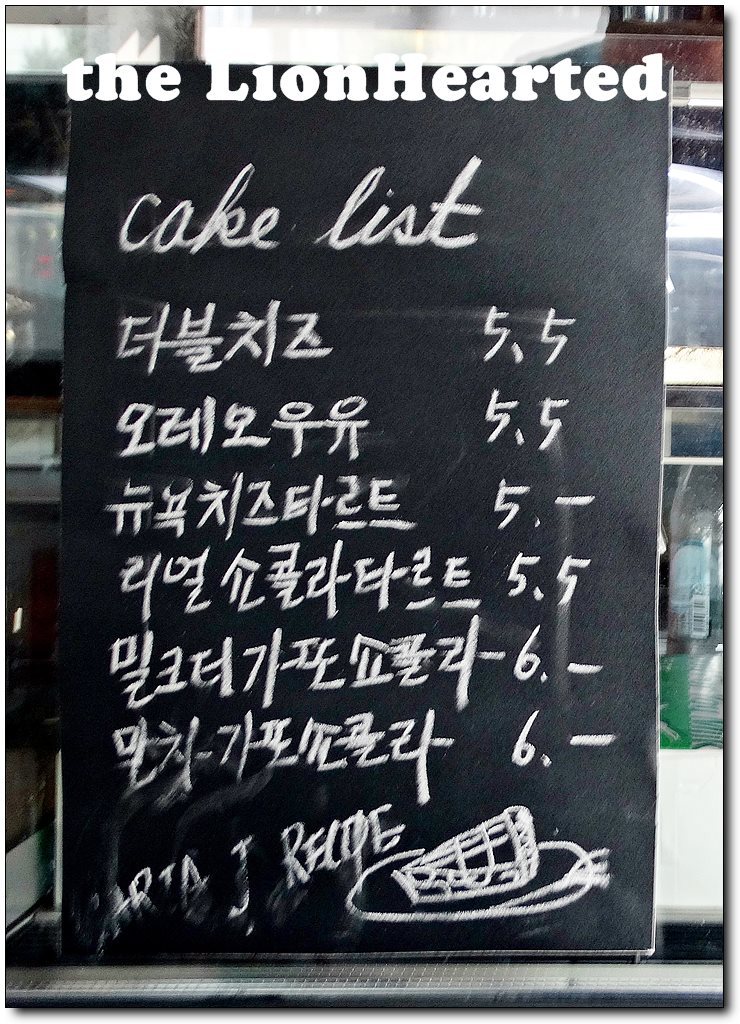 the LionHearted
cake list
더블치즈 5.5
오레오우유 5.5
뉴욕치즈타르트 5.-
리얼쇼콜라타르트 5.5
밀크터가또쇼콜라 6.-
말차가또쇼콜라 6.-
J RECIPE